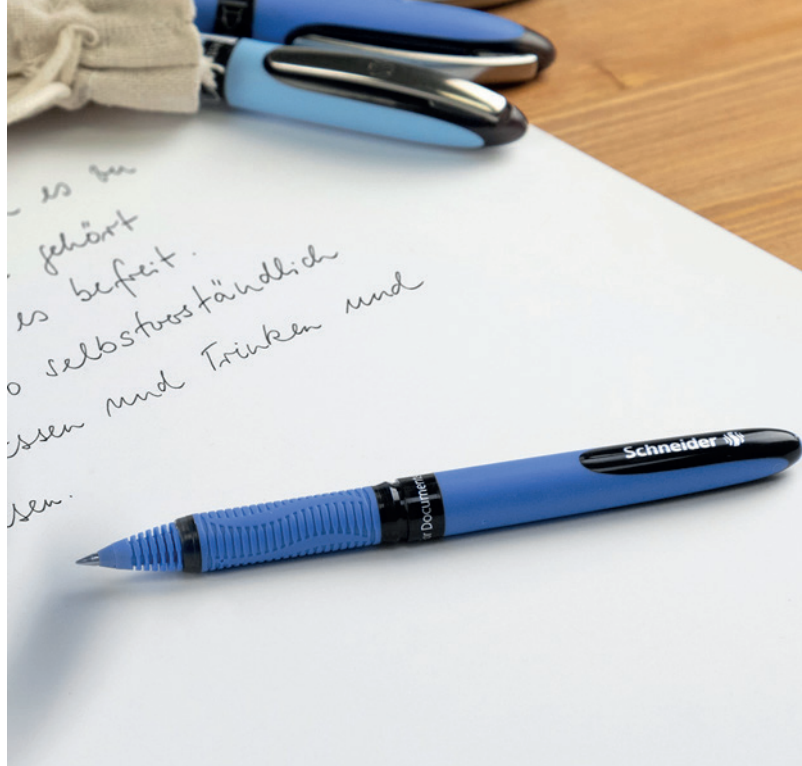 es zu
gehört
es befreit.
selbstverständlich
essen und Trinken und
sen.
Schneider
Document